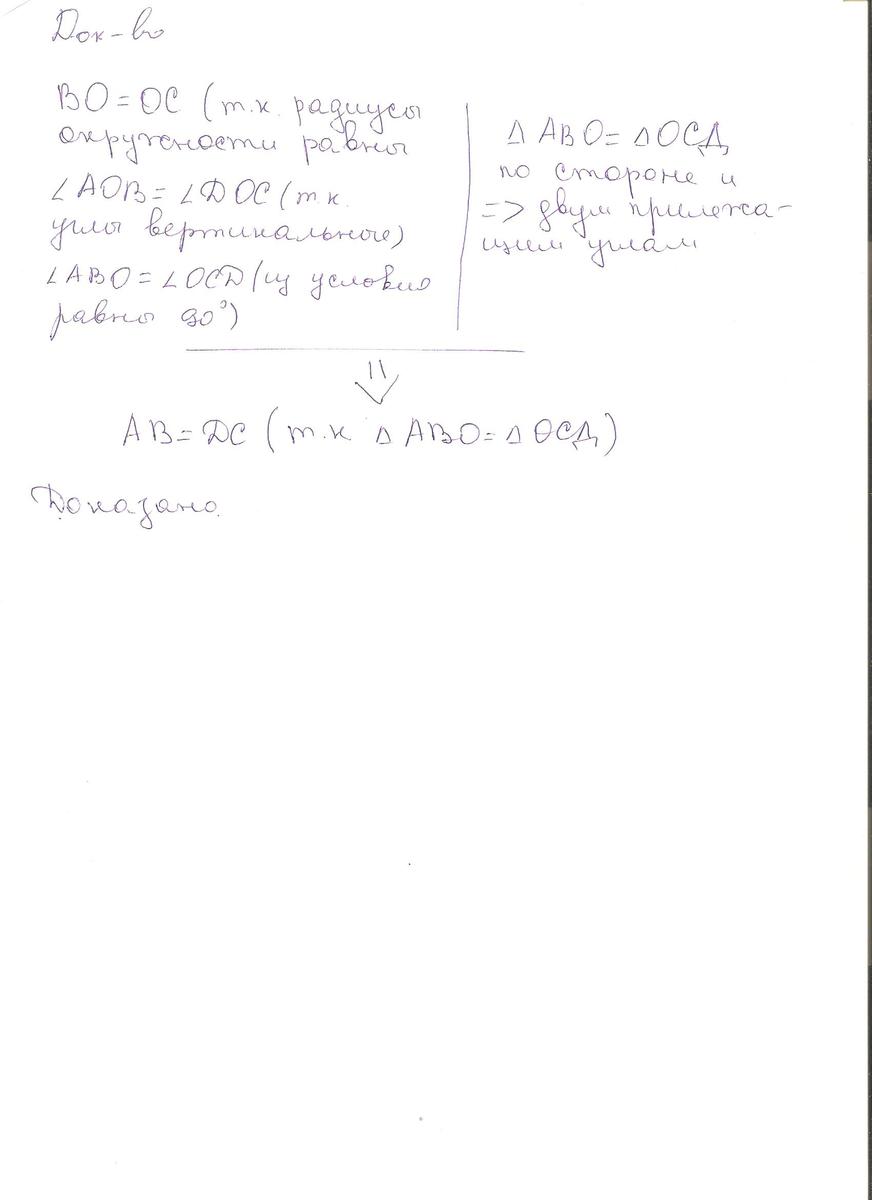 Док-во
BO = OC (т.к. радиусы
окружности равны
∠AOB = ∠DOC (т.к.
углы вертикальные)
∠ABO = ∠OCD (из условия
равны 90°)
Δ ABO = Δ OCД
по стороне и
=> двум прилежа-
щим углам
AB = DC (т.к Δ ABO = Δ OCД)
Доказано.